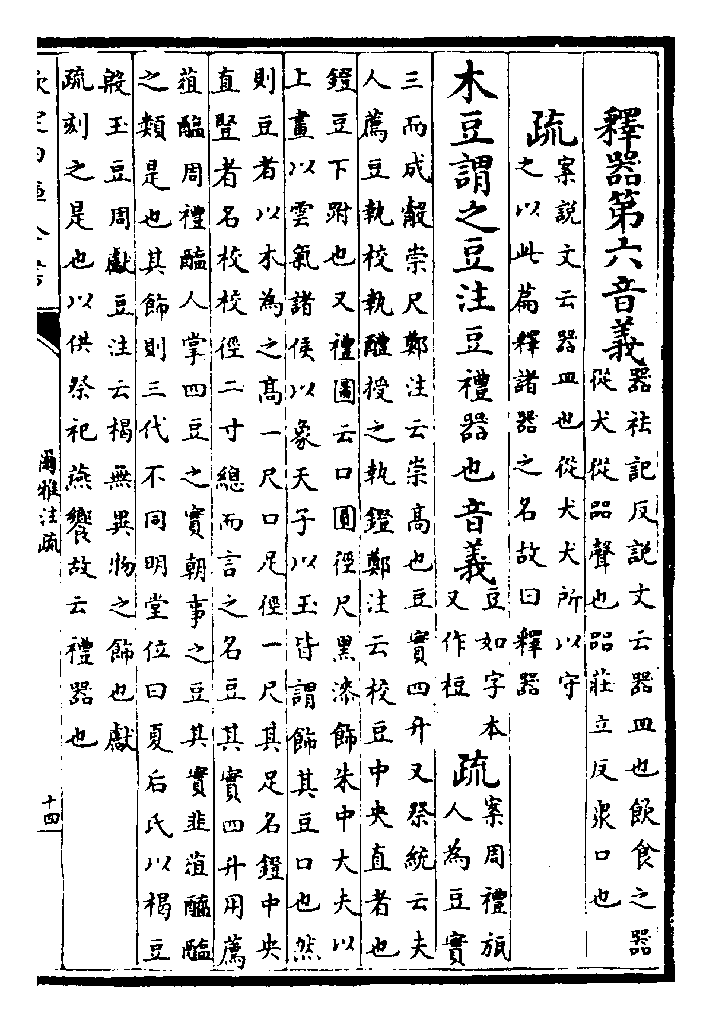 釋器第六音義器祛記反説文云器皿也飲食之器
從犬從㗊聲也㗊莊立反衆口也
疏案説文云器皿也從犬犬所以守
之以此篇釋諸器之名故曰釋器
木豆謂之豆注豆禮器也音義豆如字本
又作梪
疏案周禮旊
人為豆實
三而成觳崇尺鄭注云崇高也豆實四升又祭統云夫
人薦豆執校執醴授之執鐙鄭注云校豆中央直者也
鐙豆下跗也又禮圖云口圓徑尺黑漆飾朱中大夫以
上畫以雲氣諸侯以象天子以玉皆謂飾其豆口也然
則豆者以木為之高一尺口足徑一尺其足名鐙中央
直豎者名校校徑二寸總而言之名豆其實四升用薦
菹醢周禮醢人掌四豆之實朝事之豆其實韭菹醓醢
之類是也其飾則三代不同明堂位曰夏后氏以楬豆
殷玉豆周獻豆注云楬無異物之飾也獻
疏刻之是也以供祭祀燕饗故云禮器也
爾雅注疏
十四